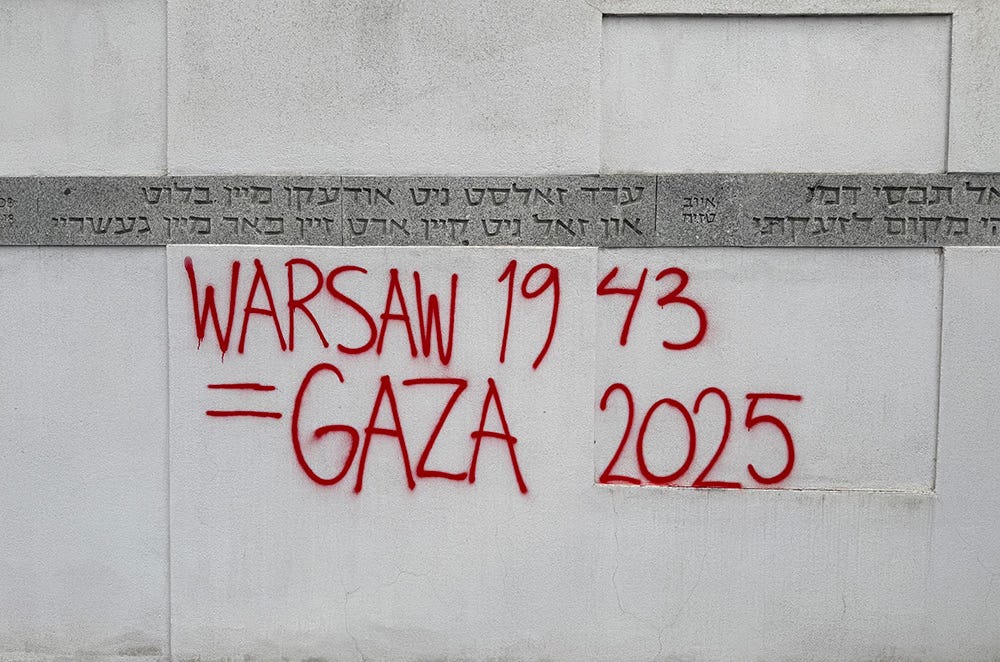 אל תכסי דמי
מקום לזעקתי
איוב
טז׳יח
ערד זאלסט ניט צודעקן מיין בלוט
און זאל ניט קיין ארט זיין פאר מיין געשריי
WARSAW 1943
=GAZA 2025